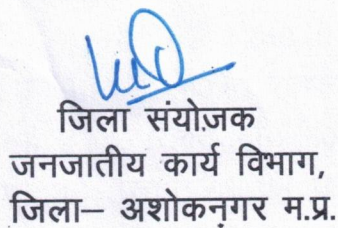 जिला संयोजक
जनजातीय कार्य विभाग,
जिला– अशोकनगर म.प्र.